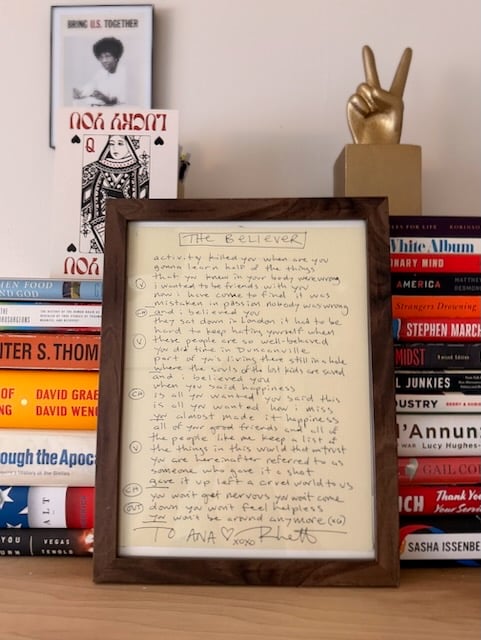 BRING U.S. TOGETHER
LUCKY YOU
Q
THE BELIEVER
activity killed you when are you
gonna learn half of the things
that you heard in your body were wrong
(V) i wanted to be friends with you
now i have come to find it was
mistaken in passion nobody was wrong
(CH) and i believed you
they sat down in london it had to be
hard to keep hating yourself when
(V) these people are so well-behaved
you did time in Duncanville
part of you's living there still in a hole
where the souls of the lost kids are saved
and i believed you
when you said happiness
(CH) is all you wanted you said this
is all you wanted how i miss
you almost made it happiness
all of your good friends and all of
the people like me keep a list of
(V) the things in this world that outrust
you are hereinafter referred to as
someone who gave it a shot
gave it up left a cruel world to us
(CH) you won't get nervous you won't come
(OUT) down you won't feel helpless
you won't be around anymore
TO ANA xoxo Rhett
EN FOOD
ND GOD
TER S. THOM
OF
NG
DAVID GRAE
DAVID WENG
ough the Apoca
ALT
YOU
URN
VEGAS
TENOLD
S FOR LIFE
ROBINSO
White Album
ONARY MIND
AMERICA
MATTHEW
DESMON
Strangers Drowning
STEPHEN MARCH
MIDST
JUNKIES
DUSTRY
BERRY
'Annun
WAR
LUCY HUGHES-
GAIL CO
CH
Thank You
Your Servic
SASHA ISSENBE